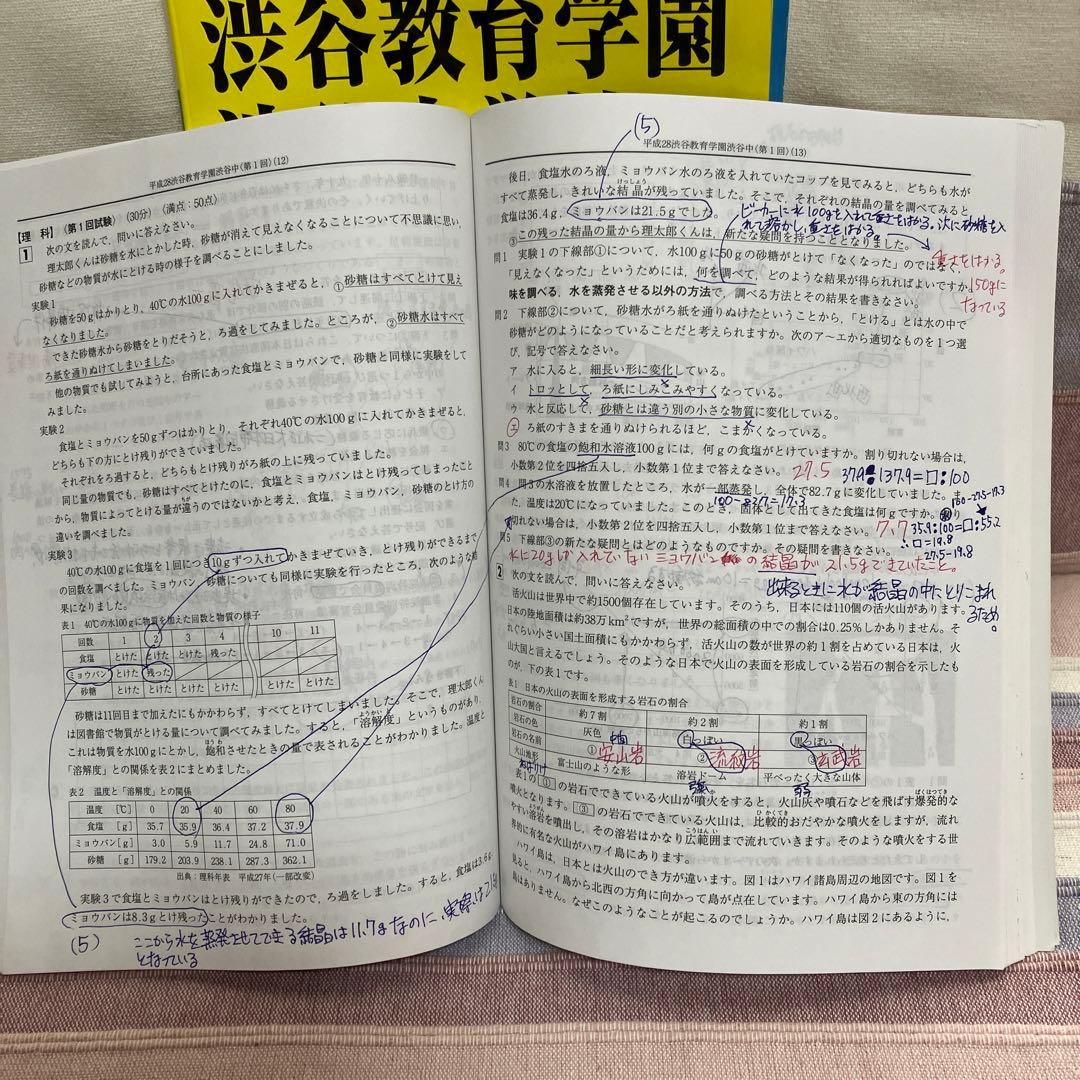 渋谷教育学園
平成28渋谷教育学園渋谷中(第1回)(12)
【理 科】〈第1回試験〉(30分)〈満点:50点〉
1 次の文を読んで,問いに答えなさい。
理太郎くんは砂糖を水にとかした時,砂糖が消えて見えなくなることについて不思議に思い,
砂糖などの物質が水にとける時の様子を調べることにしました。
実験1
砂糖を50gはかりとり,40℃の水100gに入れてかきまぜると,①砂糖はすべてとけて見え
なくなりました。
できた砂糖水から砂糖をとりだそうと,ろ過をしてみました。ところが,②砂糖水はすべて
ろ紙を通りぬけてしまいました。
他の物質でも試してみようと,台所にあった食塩とミョウバンで,砂糖と同様に実験をして
みました。
実験2
食塩とミョウバンを50gずつはかりとり,それぞれ40℃の水100gに入れてかきまぜると,
どちらも下の方にとけ残りができていました。
それぞれをろ過すると,どちらもとけ残りがろ紙の上に残っていました。
同じ量の物質でも,砂糖はすべてとけたのに,食塩とミョウバンはとけ残ってしまったこと
から,物質によってとける量が違うのではないかと考え,食塩,ミョウバン,砂糖のとけ方の
違いを調べました。
実験3
40℃の水100gに食塩を1回につき10gずつ入れてかきまぜていき,とけ残りができるまで
の回数を調べました。ミョウバン,砂糖についても同様に実験を行ったところ,次のような結
果になりました。
表1 40℃の水100gに物質を加えた回数と物質の様子
回数 1 2 3 4 10 11
食塩 とけた とけた とけた 残った
ミョウバン とけた 残った
砂糖 とけた とけた とけた とけた とけた とけた
砂糖は11回目まで加えたにもかかわらず,すべてとけてしまいました。そこで,理太郎くん
は図書館で物質がとける量について調べてみました。すると,「溶解度」というものがあり,
これは物質を水100gにとかし,飽和させたときの量で表されることがわかりました。温度と
「溶解度」との関係を表2にまとめました。
表2 温度と「溶解度」との関係
温度 [℃] 0 20 40 60 80
食塩 [g] 35.7 35.9 36.4 37.2 37.9
ミョウバン[g] 3.0 5.9 11.7 24.8 71.0
砂糖 [g] 179.2 203.9 238.1 287.3 362.1
出典:理科年表 平成27年(一部改変)
実験3で食塩とミョウバンはとけ残りができたので,ろ過をしました。すると,食塩は3.6g,
ミョウバンは8.3gとけ残ったことがわかりました。
(5) ここから水を蒸発させてできる結晶は11.7gなのに、実際は21.5g
となっている
(5)
平成28渋谷教育学園渋谷中(第1回)(13)
後日,食塩水のろ液,ミョウバン水のろ液を入れていたコップを見てみると,どちらも水が
すべて蒸発し,きれいな結晶が残っていました。そこで,それぞれの結晶の量を調べてみると,
食塩は36.4g,ミョウバンは21.5gでした。
ビーカーに水100gを入れて重さをはかる。次に砂糖を入
れて溶かし,重さをはかる。
③この残った結晶の量から理太郎くんは,新たな疑問を持つこととなりました。
重さをはかる。
問1 実験1の下線部①について,水100gに50gの砂糖がとけて「なくなった」のではなく,
「見えなくなった」というためには,何を調べて,どのような結果が得られればよいですか。
150gに
なっている
味を調べる,水を蒸発させる以外の方法で,調べる方法とその結果を書きなさい。
問2 下線部②について,砂糖水がろ紙を通りぬけたということから,「とける」とは水の中で
砂糖がどのようになっていることだと考えられますか。次のア〜エから適切なものを1つ選
び,記号で答えなさい。
ア 水に入ると,細長い形に変化している。
イ トロッとして,ろ紙にしみこみやすくなっている。
ウ 水と反応して,砂糖とは違う別の小さな物質に変化している。
エ ろ紙のすきまを通りぬけられるほど,こまかくなっている。
問3 80℃の食塩の飽和水溶液100gには,何gの食塩がとけていますか。割り切れない場合は,
小数第2位を四捨五入し,小数第1位まで答えなさい。 27.5 37.9:137.9=□:100
問4 問3の水溶液を放置したところ,水が一部蒸発し,全体で82.7gに変化していました。ま
100-82.7=17.3
100-27.5-17.3
た,温度は20℃になっていました。このとき,固体として出てきた食塩は何gですか。割り
切れない場合は,小数第2位を四捨五入し,小数第1位まで答えなさい。 7.7 35.9:100=□:55.2
∴□=19.8
27.5-19.8
問5 下線部③の新たな疑問とはどのようなものですか。その疑問を書きなさい。
水に20gしか入れていないミョウバンの結晶が21.5gできていたこと。
出来るときに水が結晶の中にとりこまれ
るため。
2 次の文を読んで,問いに答えなさい。
活火山は世界中で約1500個存在しています。そのうち,日本には110個の活火山があります。
日本の陸地面積は約38万km²ですが,世界の総面積の中での割合は0.25%しかありません。そ
れぐらい小さい国土面積にもかかわらず,活火山の数が世界の約1割を占めている日本は,火
山大国と言えるでしょう。そのような日本で火山の表面を形成している岩石の割合を示したも
のが,下の表1です。
表1 日本の火山の表面を形成する岩石の割合
岩石の割合 約7割 約2割 約1割
岩石の色 灰色 中間 白っぽい 黒っぽい
岩石の名前 ①安山岩 ②流紋岩 ③玄武岩
火山地形 富士山のような形 溶岩ドーム 平べったく大きな山体
ねばりけ 強 弱
表1の①の岩石でできている火山が噴火をすると,火山灰や噴石などを飛ばす爆発的な
噴火となります。③の岩石でできている火山は,比較的おだやかな噴火をしますが,流れ
やすい溶岩を噴出し,その溶岩はかなり広範囲まで流れていきます。そのような噴火をする世
界的に有名な火山がハワイ島にあります。
ハワイ島は,日本とは火山のでき方が違います。図1はハワイ諸島周辺の地図です。図1を
見ると,ハワイ島から北西の方向に向かって島が点在しています。ハワイ島から東の方向には
島はありません。なぜこのようなことが起こるのでしょうか。ハワイ島は図2にあるように,